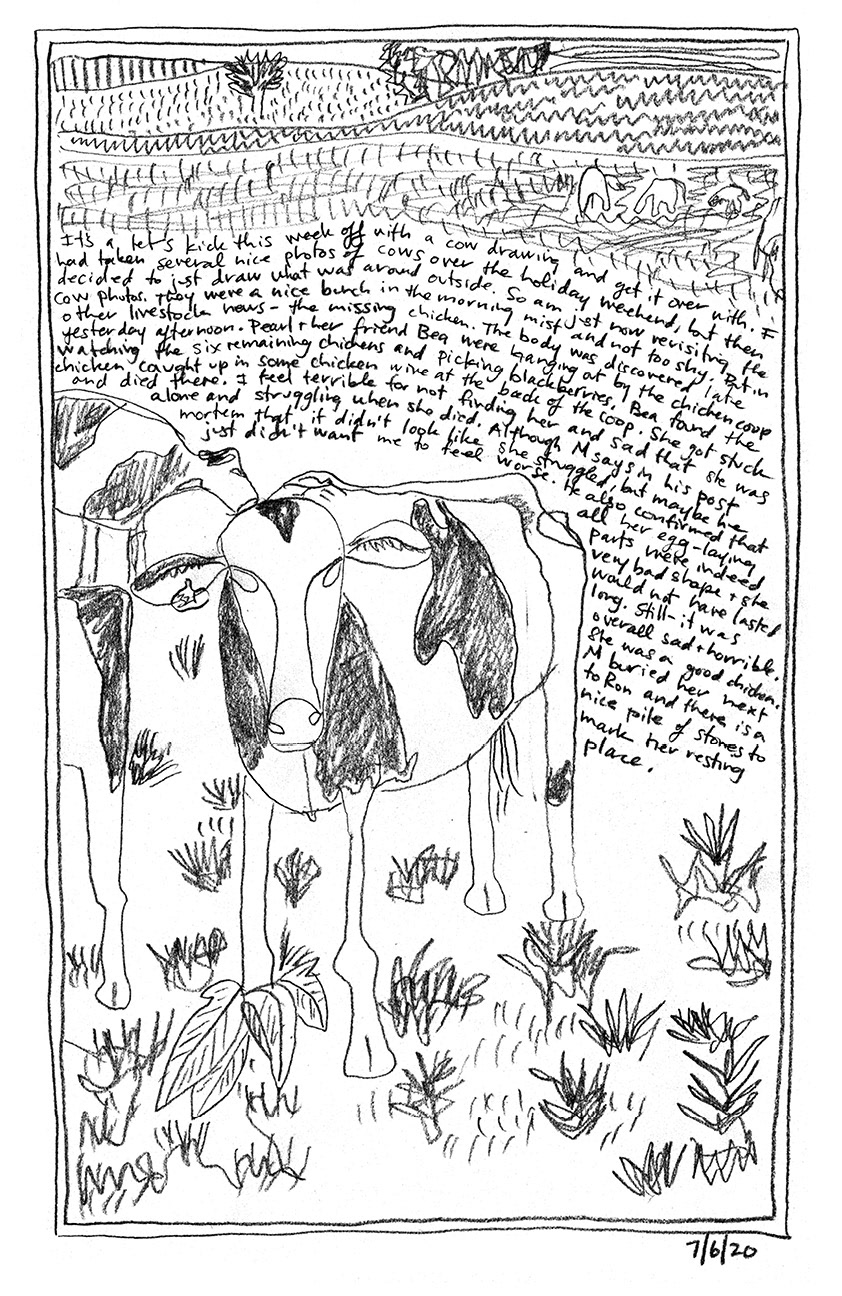 It's a let's kick this week off with a cow drawing and get it over with. I
had taken several nice photos of cows over the holiday weekend, but then
decided to just draw what was around outside. So am just now revisiting the
cow photos. They were a nice bunch in the morning mist and not too shy. But in
other livestock news - the missing chicken. The body was discovered late
yesterday afternoon. Pearl + her friend Bea were hanging out by the chicken coop
watching the six remaining chickens and picking blackberries. Bea found the
chicken caught up in some chicken wire at the back of the coop. She got stuck
and died there. I feel terrible for not finding her and sad that she was
alone and struggling when she died. Although M says in his post
mortem that it didn't look like she struggled, but maybe he
just didn't want me to feel worse. He also confirmed that
all her egg-laying
parts were indeed
very bad shape + she
would not have lasted
long. Still - it was
overall sad + horrible.
She was a good chicken.
M buried her next
to Ron and there is a
nice pile of stones to
mark her resting
place.
7/6/20